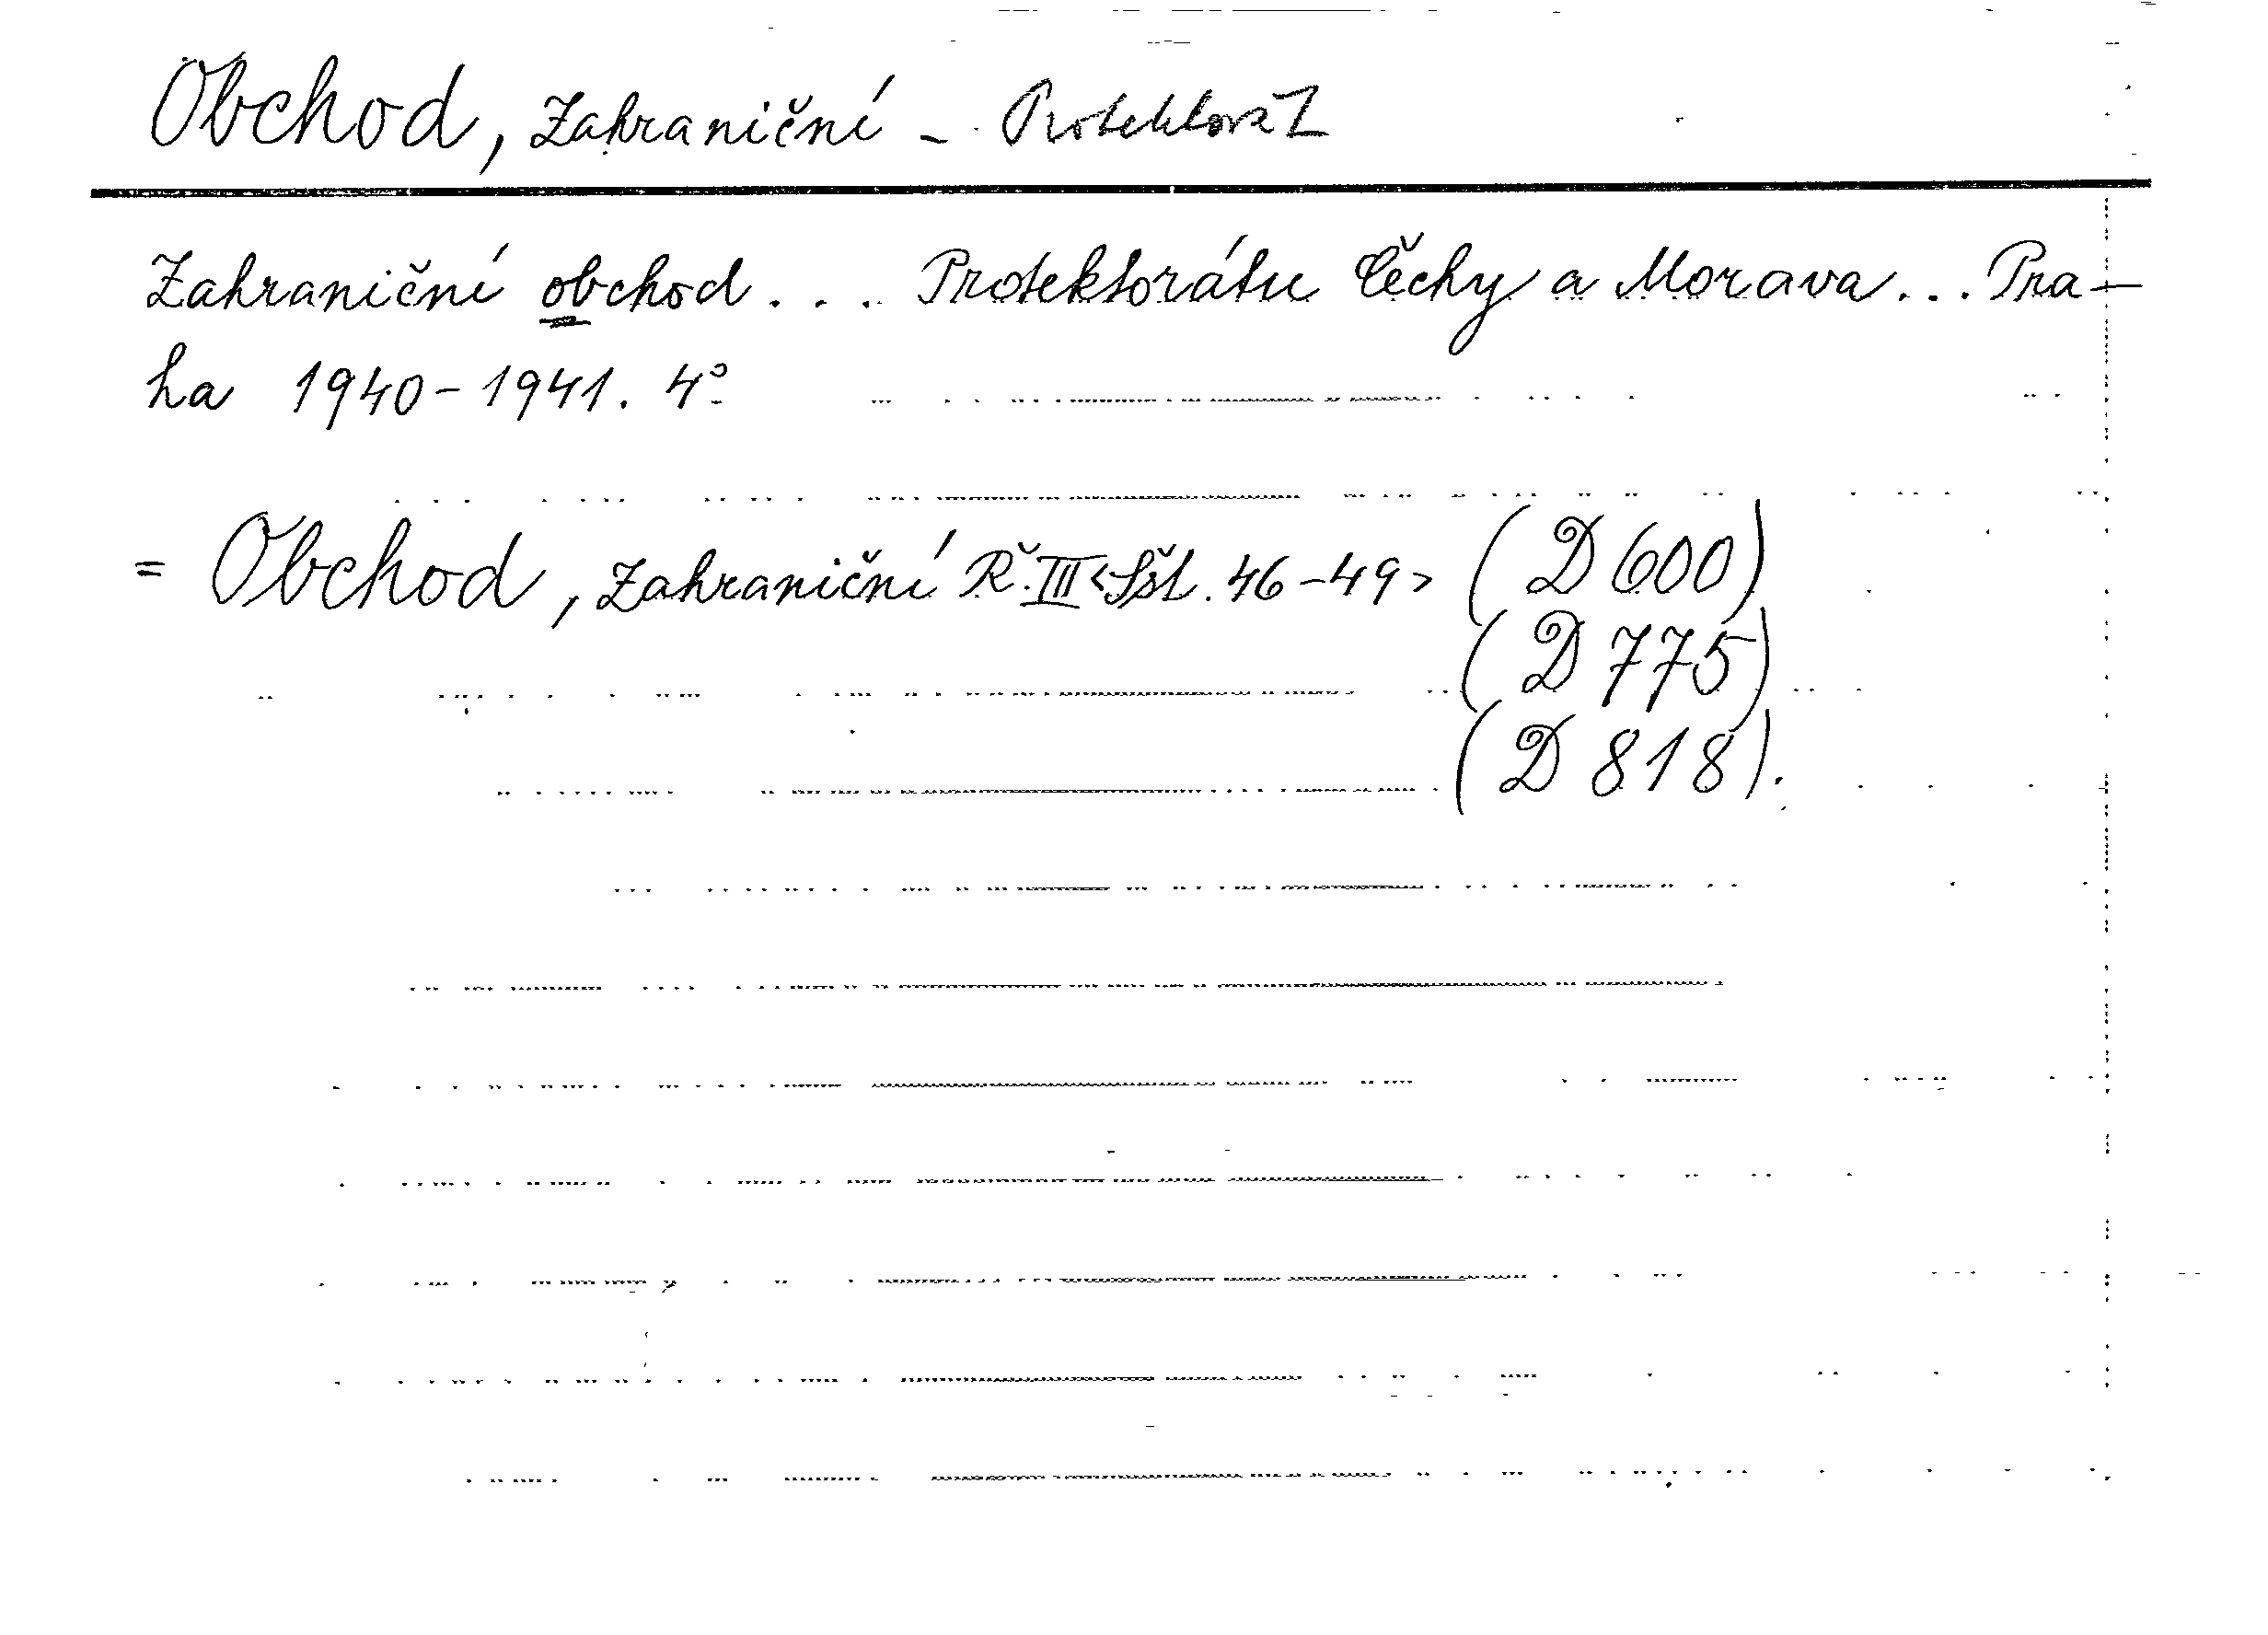 Obchod, zahraniční - Protektorát
Zahraniční obchod... Protektorátu Čechy a Morava... Pra-
ha 1940-1941. 4°
= Obchod, zahraniční Ř. III <Sšt. 46-49> (D 600)
(D 775)
(D 818).